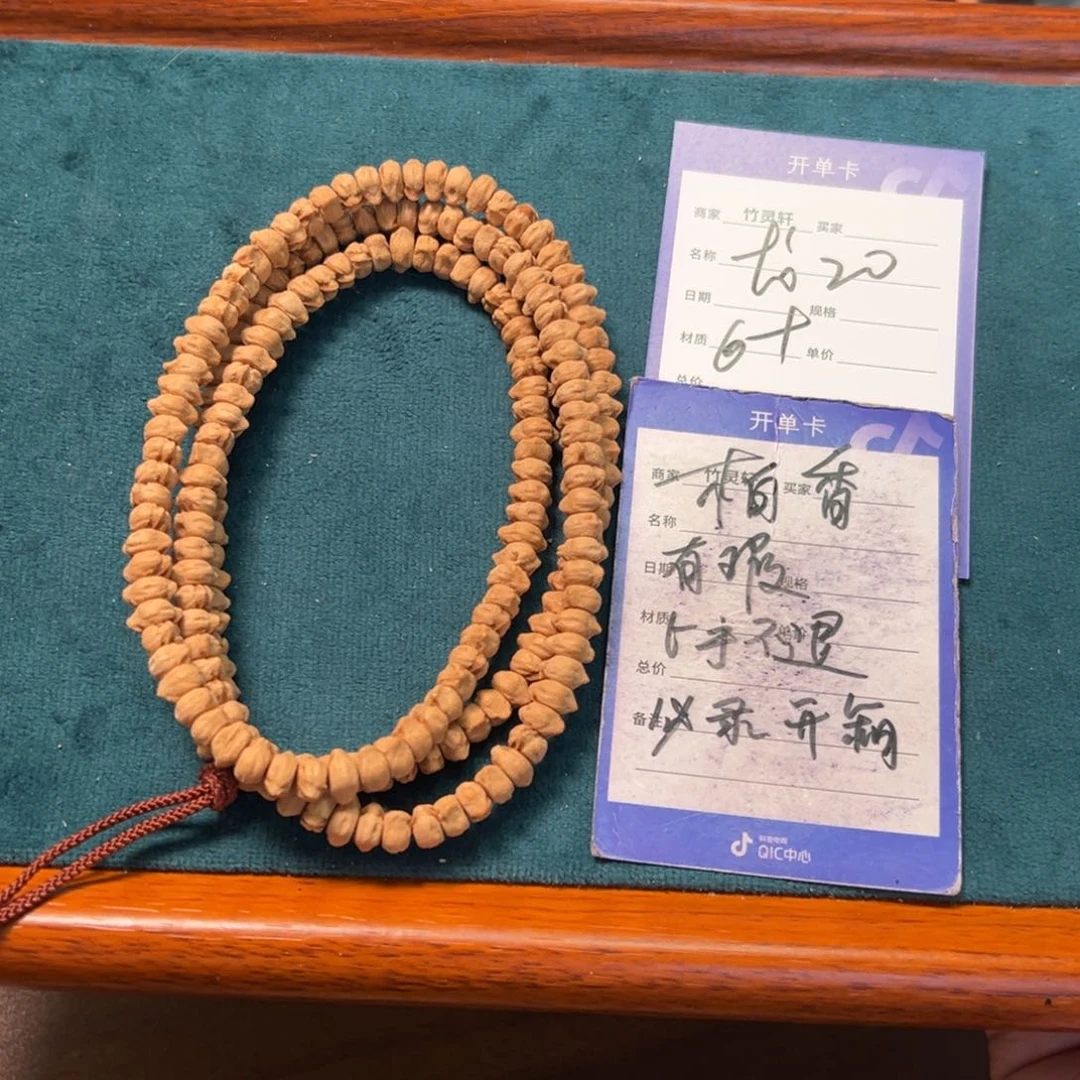 开单卡
商家 竹灵轩 买家
名称 20
日期 规格
材质 6+ 单价
总价
开单卡
商家 竹灵轩 买家
柏香
名称
日期 规格
有瑕
材质
下手不退
总价
备注 必录开箱
抖音电商
QIC中心